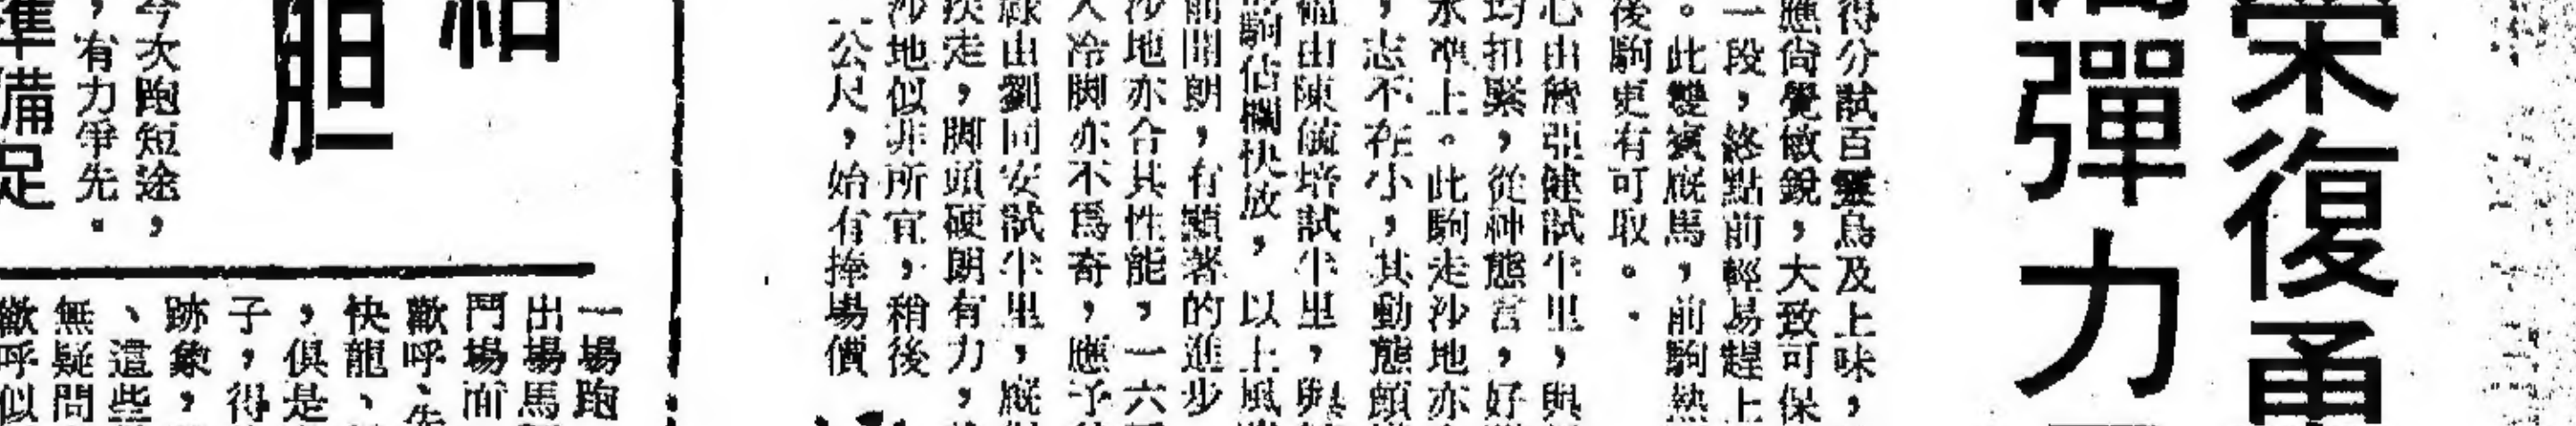 榮復勇
彈力
得分試百靈鳥及上味，
應尙覺敏銳，大致可保
一段，終點前輕易趕上
。此雙賓廐馬，前駒熱
後駒更有可取。
心由詹亞健試半里，與
均扣緊，從神態言，好
水準上。此駒走沙地亦
，志不在小，其動態頗
福由陳毓培試半里，與
駒佔欄快放，以上風
前開朗，有顯著的進步
沙地亦合其性能，一六
人冷脚亦不爲奇，應予
綠由劉同安試半里，廐
疾走，脚頭硬朗有力，
沙地似非所宜，稍後
一公尺，始有捧塲價
和
胆
今次跑短途，
，有力爭先。
準備足
一塲跑
出塲馬
鬥塲面
歡呼、先
快龍、
，俱是
子，得
跡象，
、這些
無疑問
歡呼似